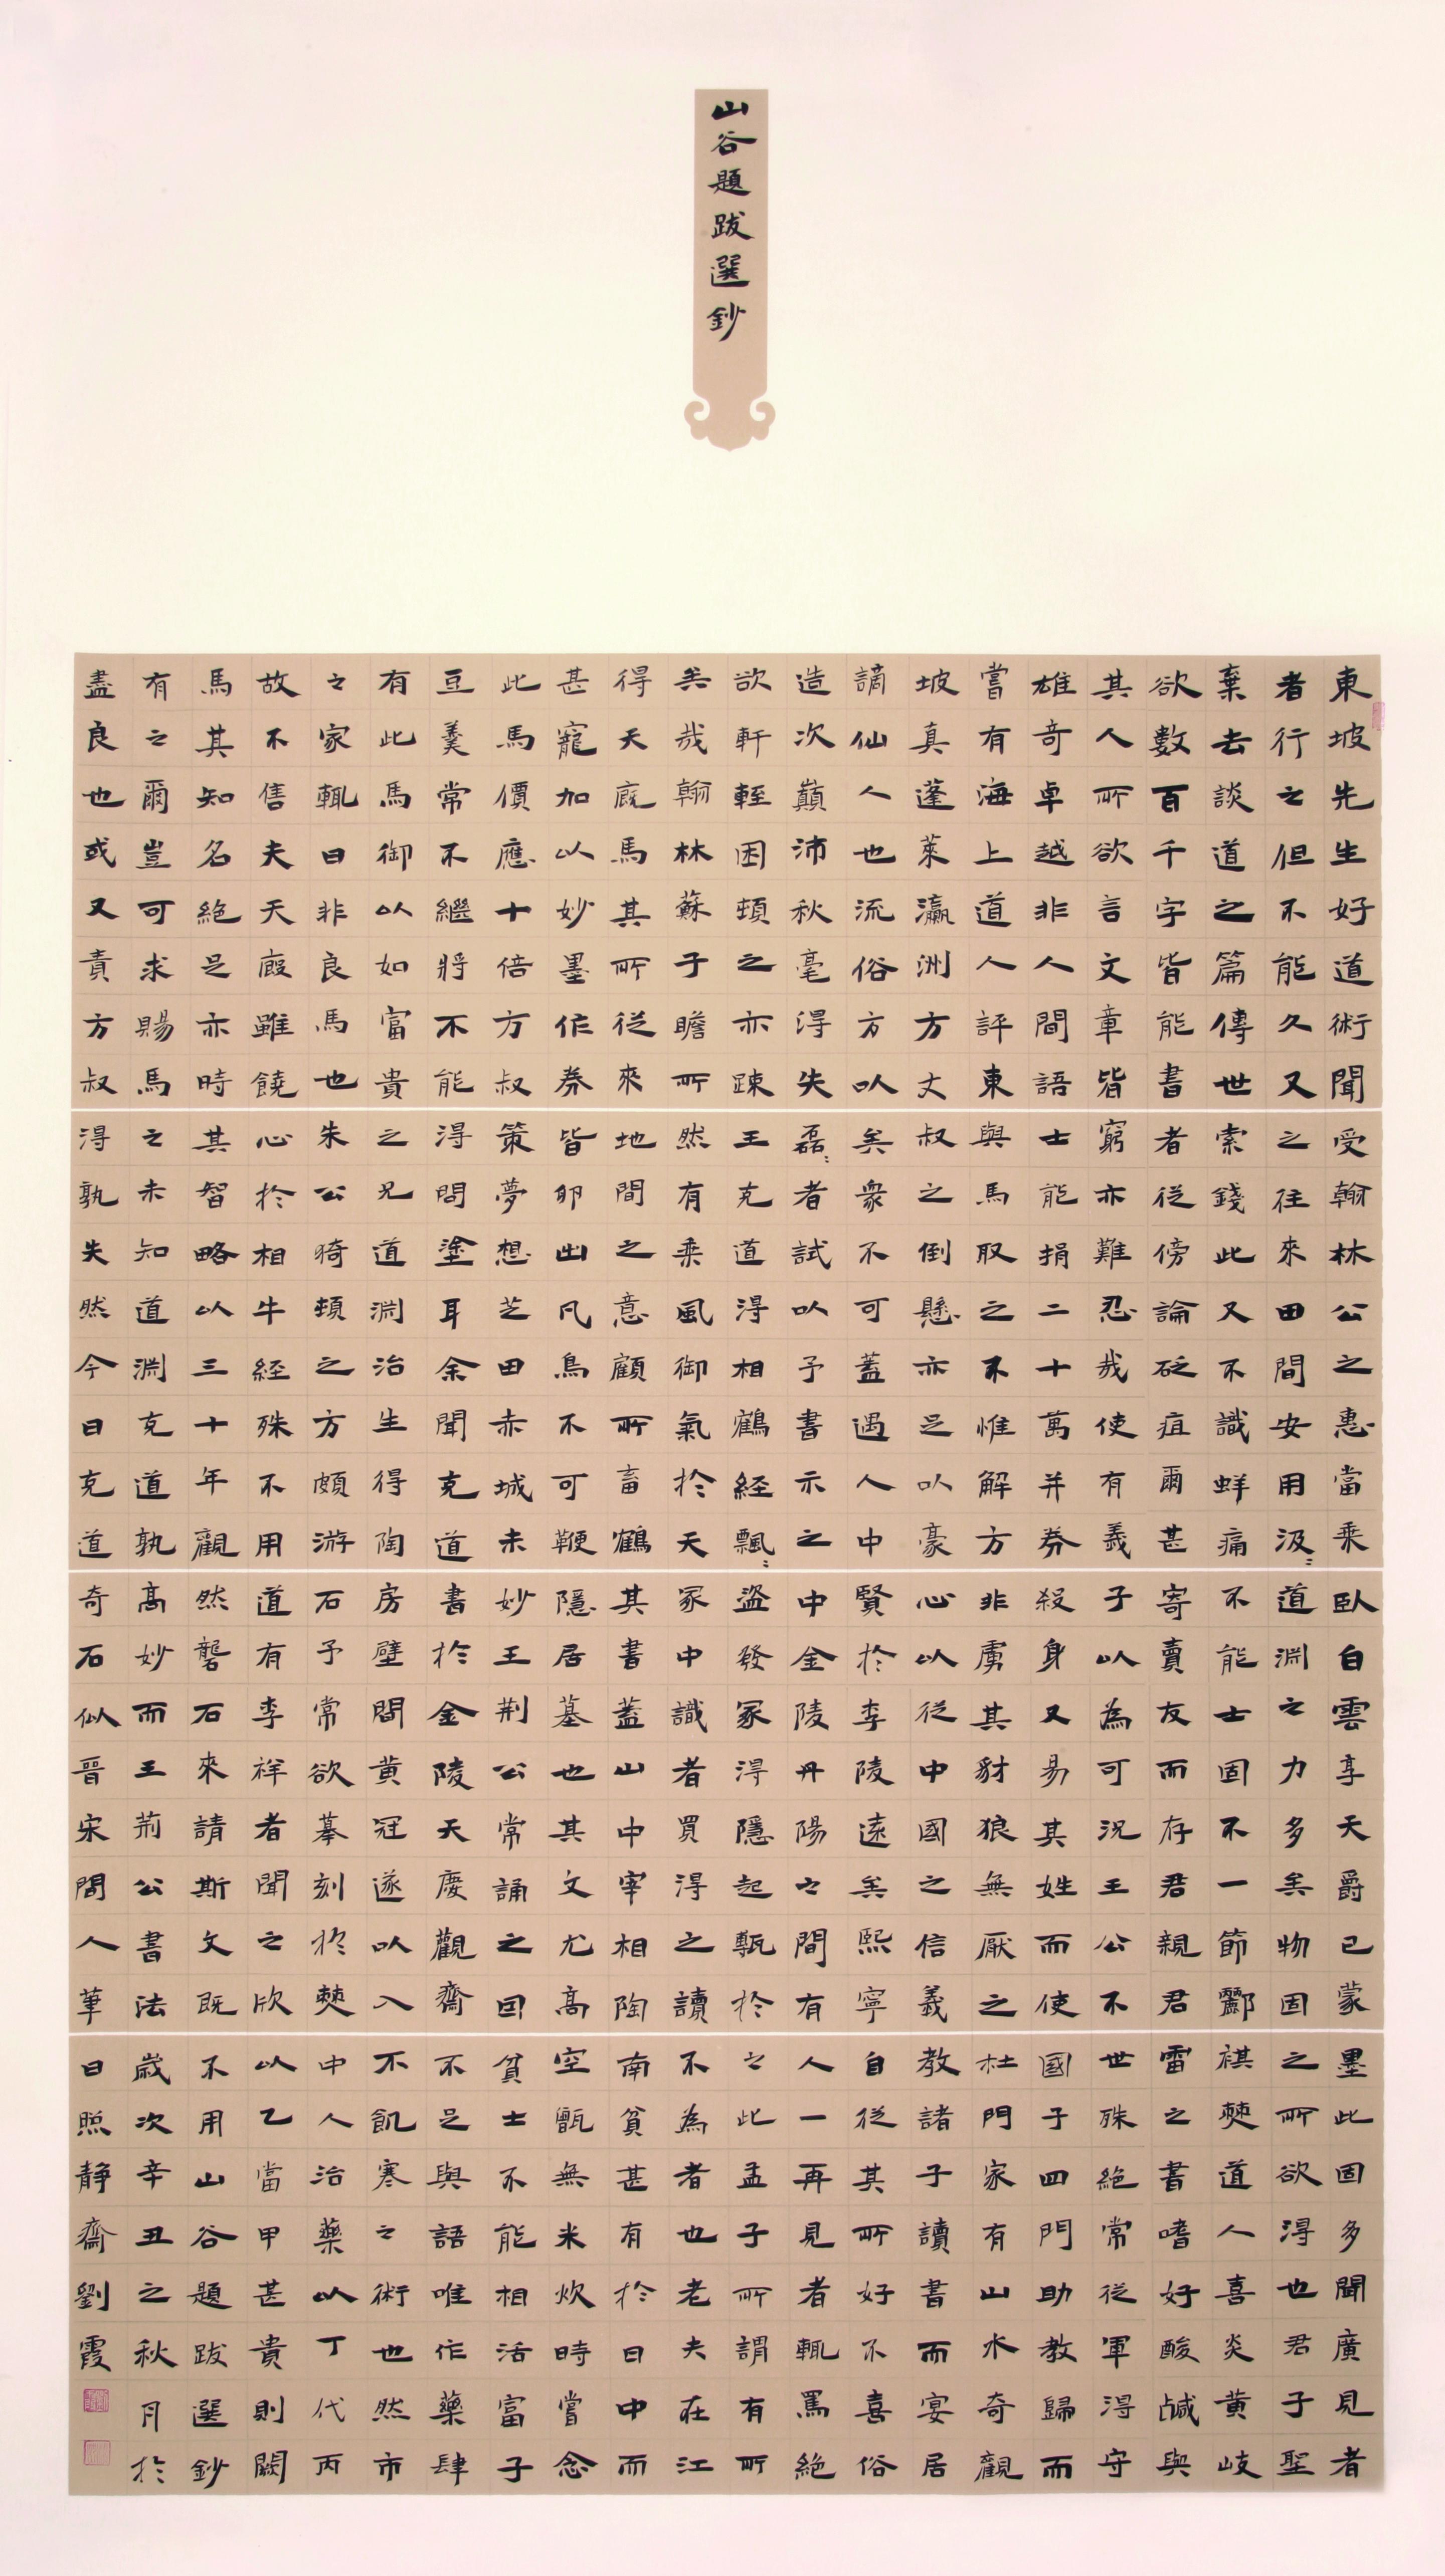 山谷題跋選鈔
東坡先生好道術聞
者行之但不能久又
棄去談道之篇傳世
欲數百千字皆能書
其人所欲言文章皆
雄奇卓越非人間語
嘗有海上道人評東
坡真蓬萊瀛洲方丈
謫仙人也流俗方以
造次巔沛秋毫得失
欲軒輊困頓之亦踈
矣哉翰林蘇子瞻所
得天廐馬其所從來
甚寵加以妙墨作券
此馬價應十倍方叔
豆羹常不繼將不能
有此馬御以如富貴
之家輒曰非良馬也
故不售夫天廐雖饒
馬其知名絕足亦時
有之爾豈可求賜馬
盡良也或又責方叔
受翰林公之惠當乘
之往來田間安用汲〻
索錢此又不識蚌痛
者從傍論砭疽爾甚
窮亦難忍哉使有義
士能捐二十萬并券
與馬取之不惟解方
叔之倒懸亦足以豪
矣衆不可蓋遇人中
磊〻者試以予書示之
王充道得相鶴經飄〻
然有乘風御氣於天
地間之意顧所畜鶴
皆卵出凡鳥不可鞭
策夢想芝田赤城未
得問塗耳余聞充道
之兄道淵治生得陶
朱公猗頓之方頗游
心於相牛經殊不用
其智略以三十年觀
之未知道淵充道孰
得孰失然今日充道
臥白雲享天爵已蒙
道淵之力多矣物固
不能士固不一節酈
寄賣友而存君親君
子以為可況王公不
殺身又易其姓而使
非虜其豺狼無厭之
心以從中國之信義
賢於李陵遠矣熙寧
中金陵丹陽之間有
盜發冢得隱起甎於
冢中識者買得之讀
其書蓋山中宰相陶
隱居墓也其文尤高
妙王荊公常誦之因
書於金陵天慶觀齋
房壁間黃冠遂以入
石予常欲摹刻於僰
道有李祥者聞之欣
然礱石來請斯文既
高妙而王荊公書法
奇石似晉宋間人筆
墨此固多聞廣見者
之所欲得也君子聖
祺僰道人喜炎黃岐
雷之書嗜好酸鹹與
世殊絕常從軍得守
國子四門助教歸而
杜門家有山水奇觀
教諸子讀書而宴居
自從其所好不喜俗
人一再見者輒罵絕
之此孟子所謂有所
不為者也老夫在江
南貧甚有於日中而
空甑無米炊時嘗念
貧士不能相活富子
不足與語唯作藥肆
不飢寒之術也然市
中人治藥以丁代丙
以乙當甲甚貴則闕
不用山谷題跋選鈔
歲次辛丑之秋月於
日照靜齋劉霞